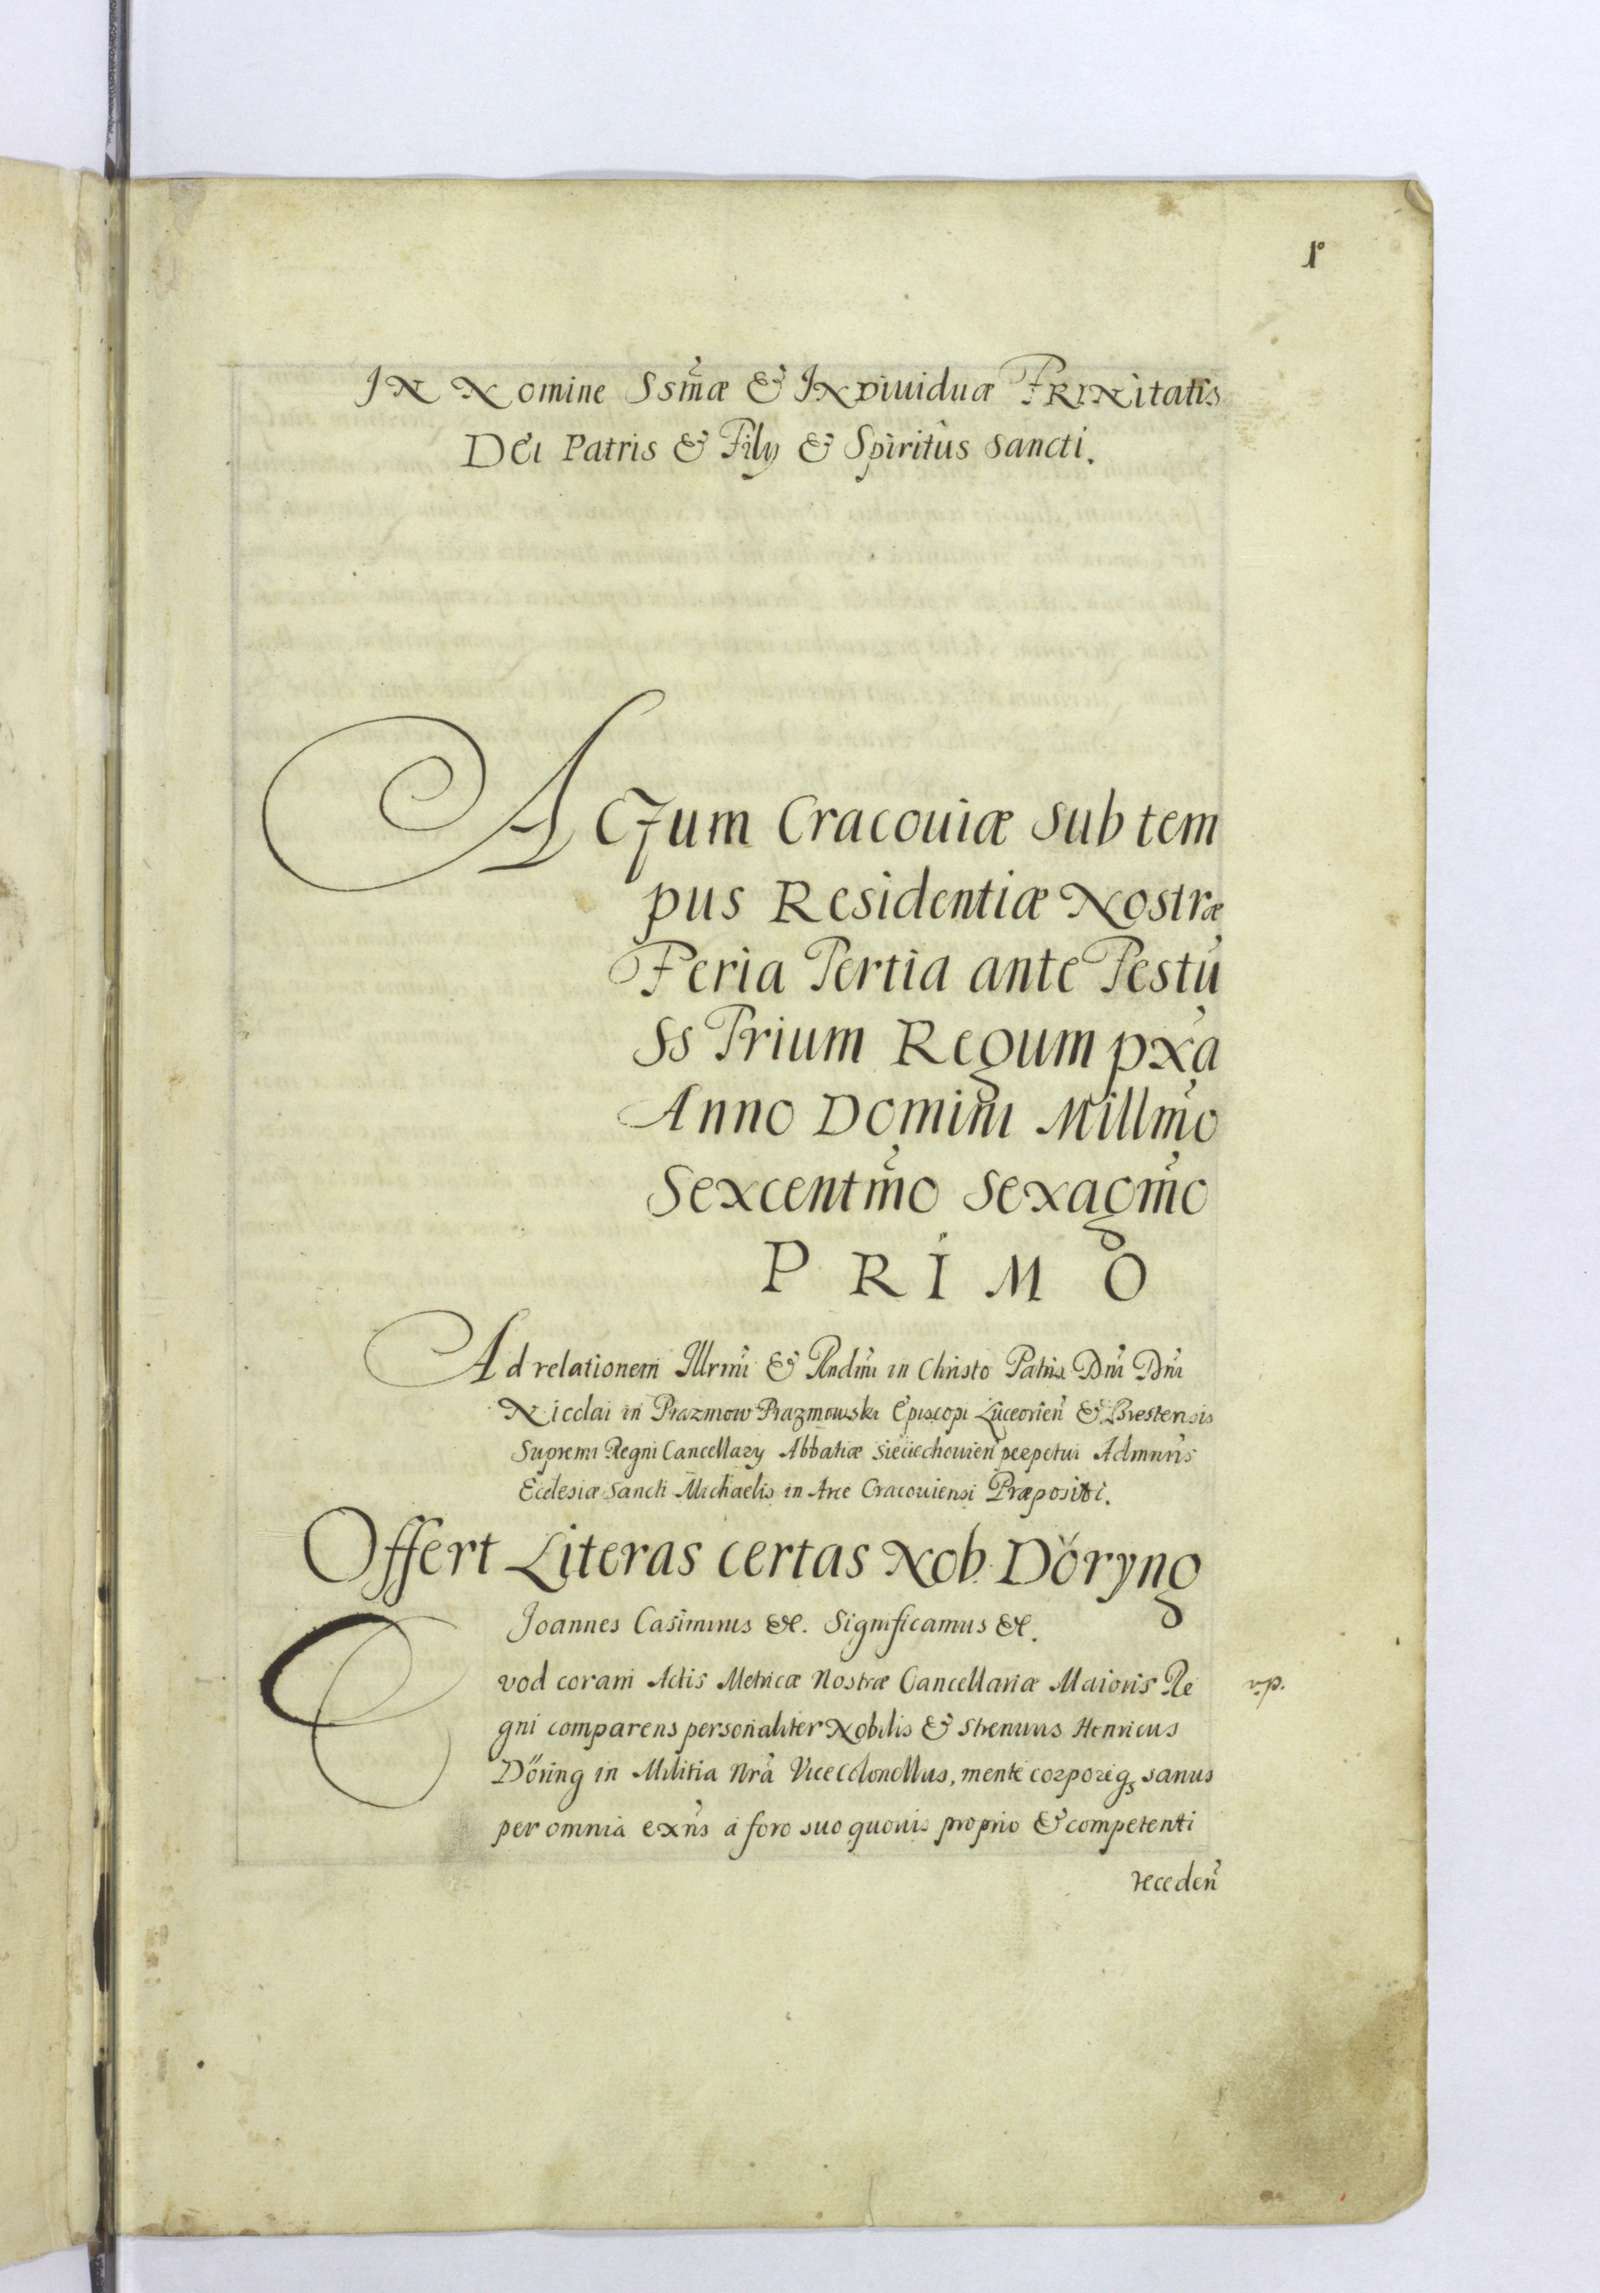 1º
IN Nomine Ssm̃æ & INDiuiduæ TRINitatis
DEI Patris & Filÿ & Spiritûs Sancti.
ACTum Cracouiæ Sub tem
pus Residentiæ Nostræ
Feria Tertia ante Festũ
Ss Trium Regum px̃a
Anno Domini Millm̃o
Sexcentm̃o Sexagm̃o
PRIMO
Ad relationem Illrmĩ & Rndmĩ in Christo Patris Dnĩ Dnĩ
Nicolai in Prazmow Prazmowski Episcopi Luceorieñ & Brestensis
Supremi Regni Cancellarÿ Abbatiæ Sieciechouieñ perpetui Admnrĩs
Ecclesiæ Sancti Michaelis in Arce Cracouiensi Præpositi.
Offert Literas certas Nob. Döryng
Joannes Casimirus &c. Significamus &c.
Quod coram Actis Metricæ Nostræ Cancellariæ Maioris Re
v.p.
gni comparens personaliter Nobilis & Strenuus Henricus
Döring in Militia Nrã ViceColonellus, mente corporeq3 sanus
per omnia exñs à foro suo quouis proprio & competenti
recedeñ